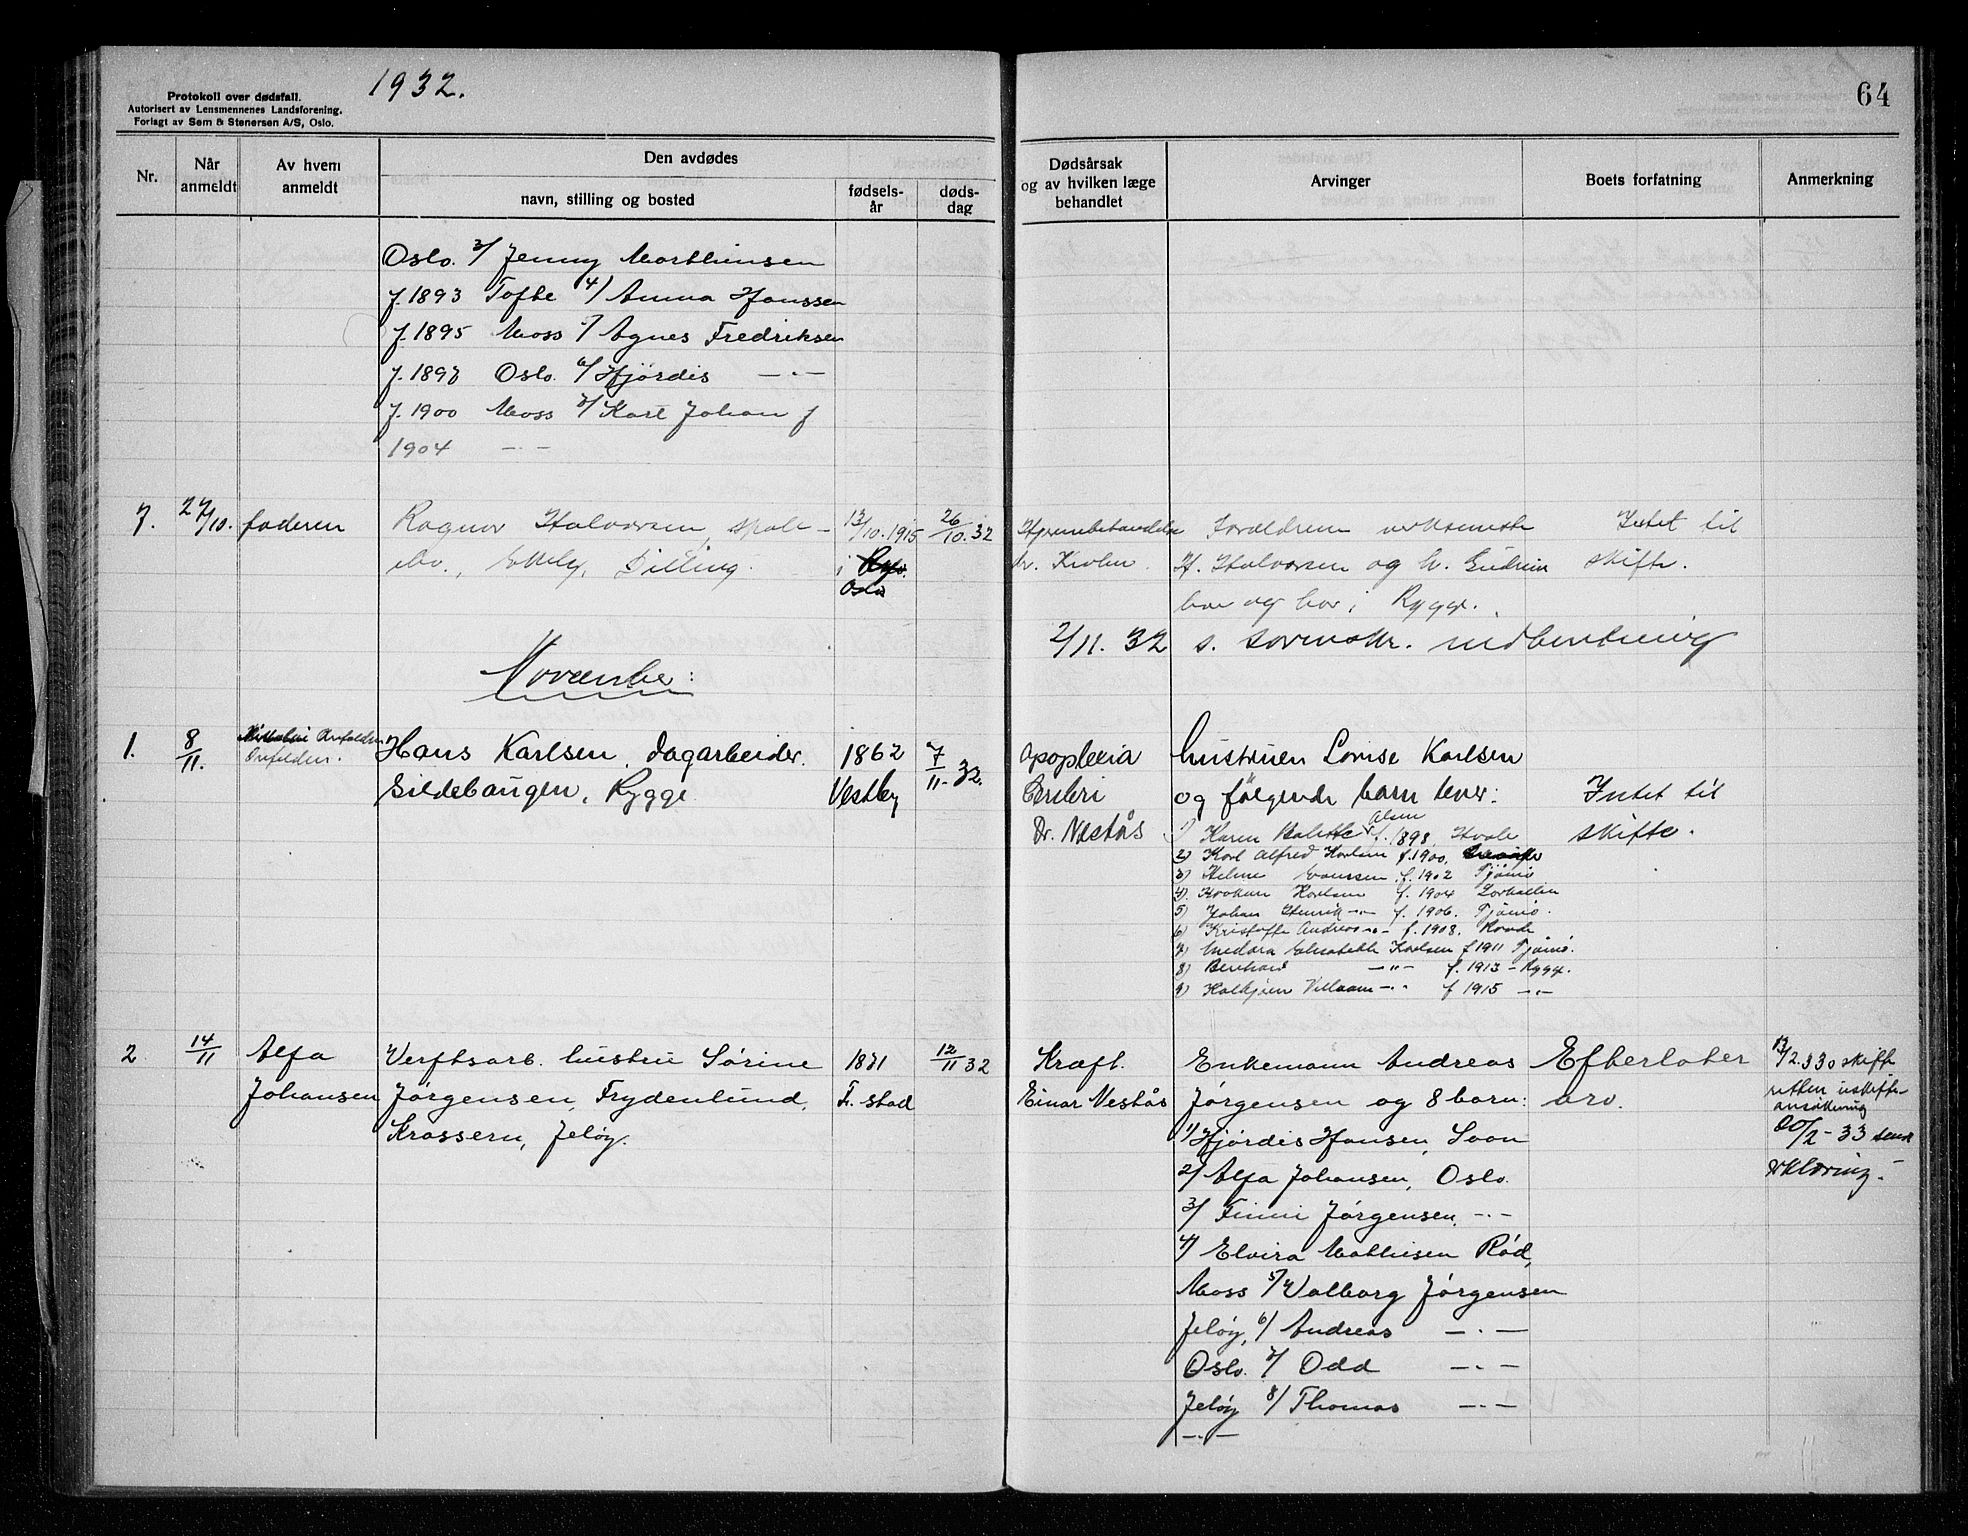 1932.
Protokoll over dødsfall.
Autorisert av Lensmennenes Landsforening.
Forlagt av Sem & Stenersen A/S, Oslo.
64
Nr.
Når anmeldt
Av hvem anmeldt
Den avdødes
navn, stilling og bosted
fødsels-år
døds-dag
Dødsårsak og av hvilken læge behandlet
Arvinger
Boets forfatning
Anmerkning
Oslo. 3/ Jenny Marthinsen
f. 1893 Tofte 4/ Anna Hanssen
f. 1895 Moss 5/ Agnes Fredriksen
f. 1897 Oslo. 6/ Hjørdis —"—
f. 1900 Moss 7/ Karl Johan f
1904 —"—
7. 27/10. faderen Ragnar Halvorsen, 13/10. 1915 26/10. 32
Dilling. i Oslo
Hjernebetændelse Forældrene
dr. H. Halvorsen og h. Gudrun
bor i Rygge.
Intet til
skifte.
2/11. 32 s. indberetning
November:
1. 8/11. Hans Karlsen, dagarbeider. 1862 7/11. 32.
Sildebaugen, Rygge. Vestby
apoplexia
Cerebri
Dr. Nestås
hustruen Lovise Karlsen
og følgende barn lever:
1) Karen Olsen f. 1898,
2) Karl Alfred Karlsen f. 1900.
3) Helene f. 1902 Tjømø
4) Haakon Karlsen f. 1904
5) Johan Henrik —"— f. 1906. Tjømø.
6) Kristoffer Andreas —"— f. 1908. Raade
7) Elisabeth Karlsen f 1911 Tjømø.
8) Bernhard —"— f. 1913 – Rygge.
9) —"— f 1915 —"—
Intet til
skifte.
2. 14/11 Alfa Verftsarb. hustru Sørine 1871 12/11 32
Johansen Jørgensen, Frydenlund, F. stad
Krossern, Jeløy.
Kræft.
Einar Nestås
Enkemann Andreas
Jørgensen og 8 barn:
1/ Hjørdis Hansen, Soon
2/ Alfa Johansen, Oslo.
3/ Finni Jørgensen, —"—
4/ Elvira Mathisen Rød,
Moss 5/ Valborg Jørgensen
Jeløy, 6/ Andreas —"—
Oslo. 7/ Odd —"—
Jeløy 8/ Thomas —"—
—"—
Efterlater
arv.
skifte
retten uskifte-
ansøkning
20/2 – 33 send
erklæring. –